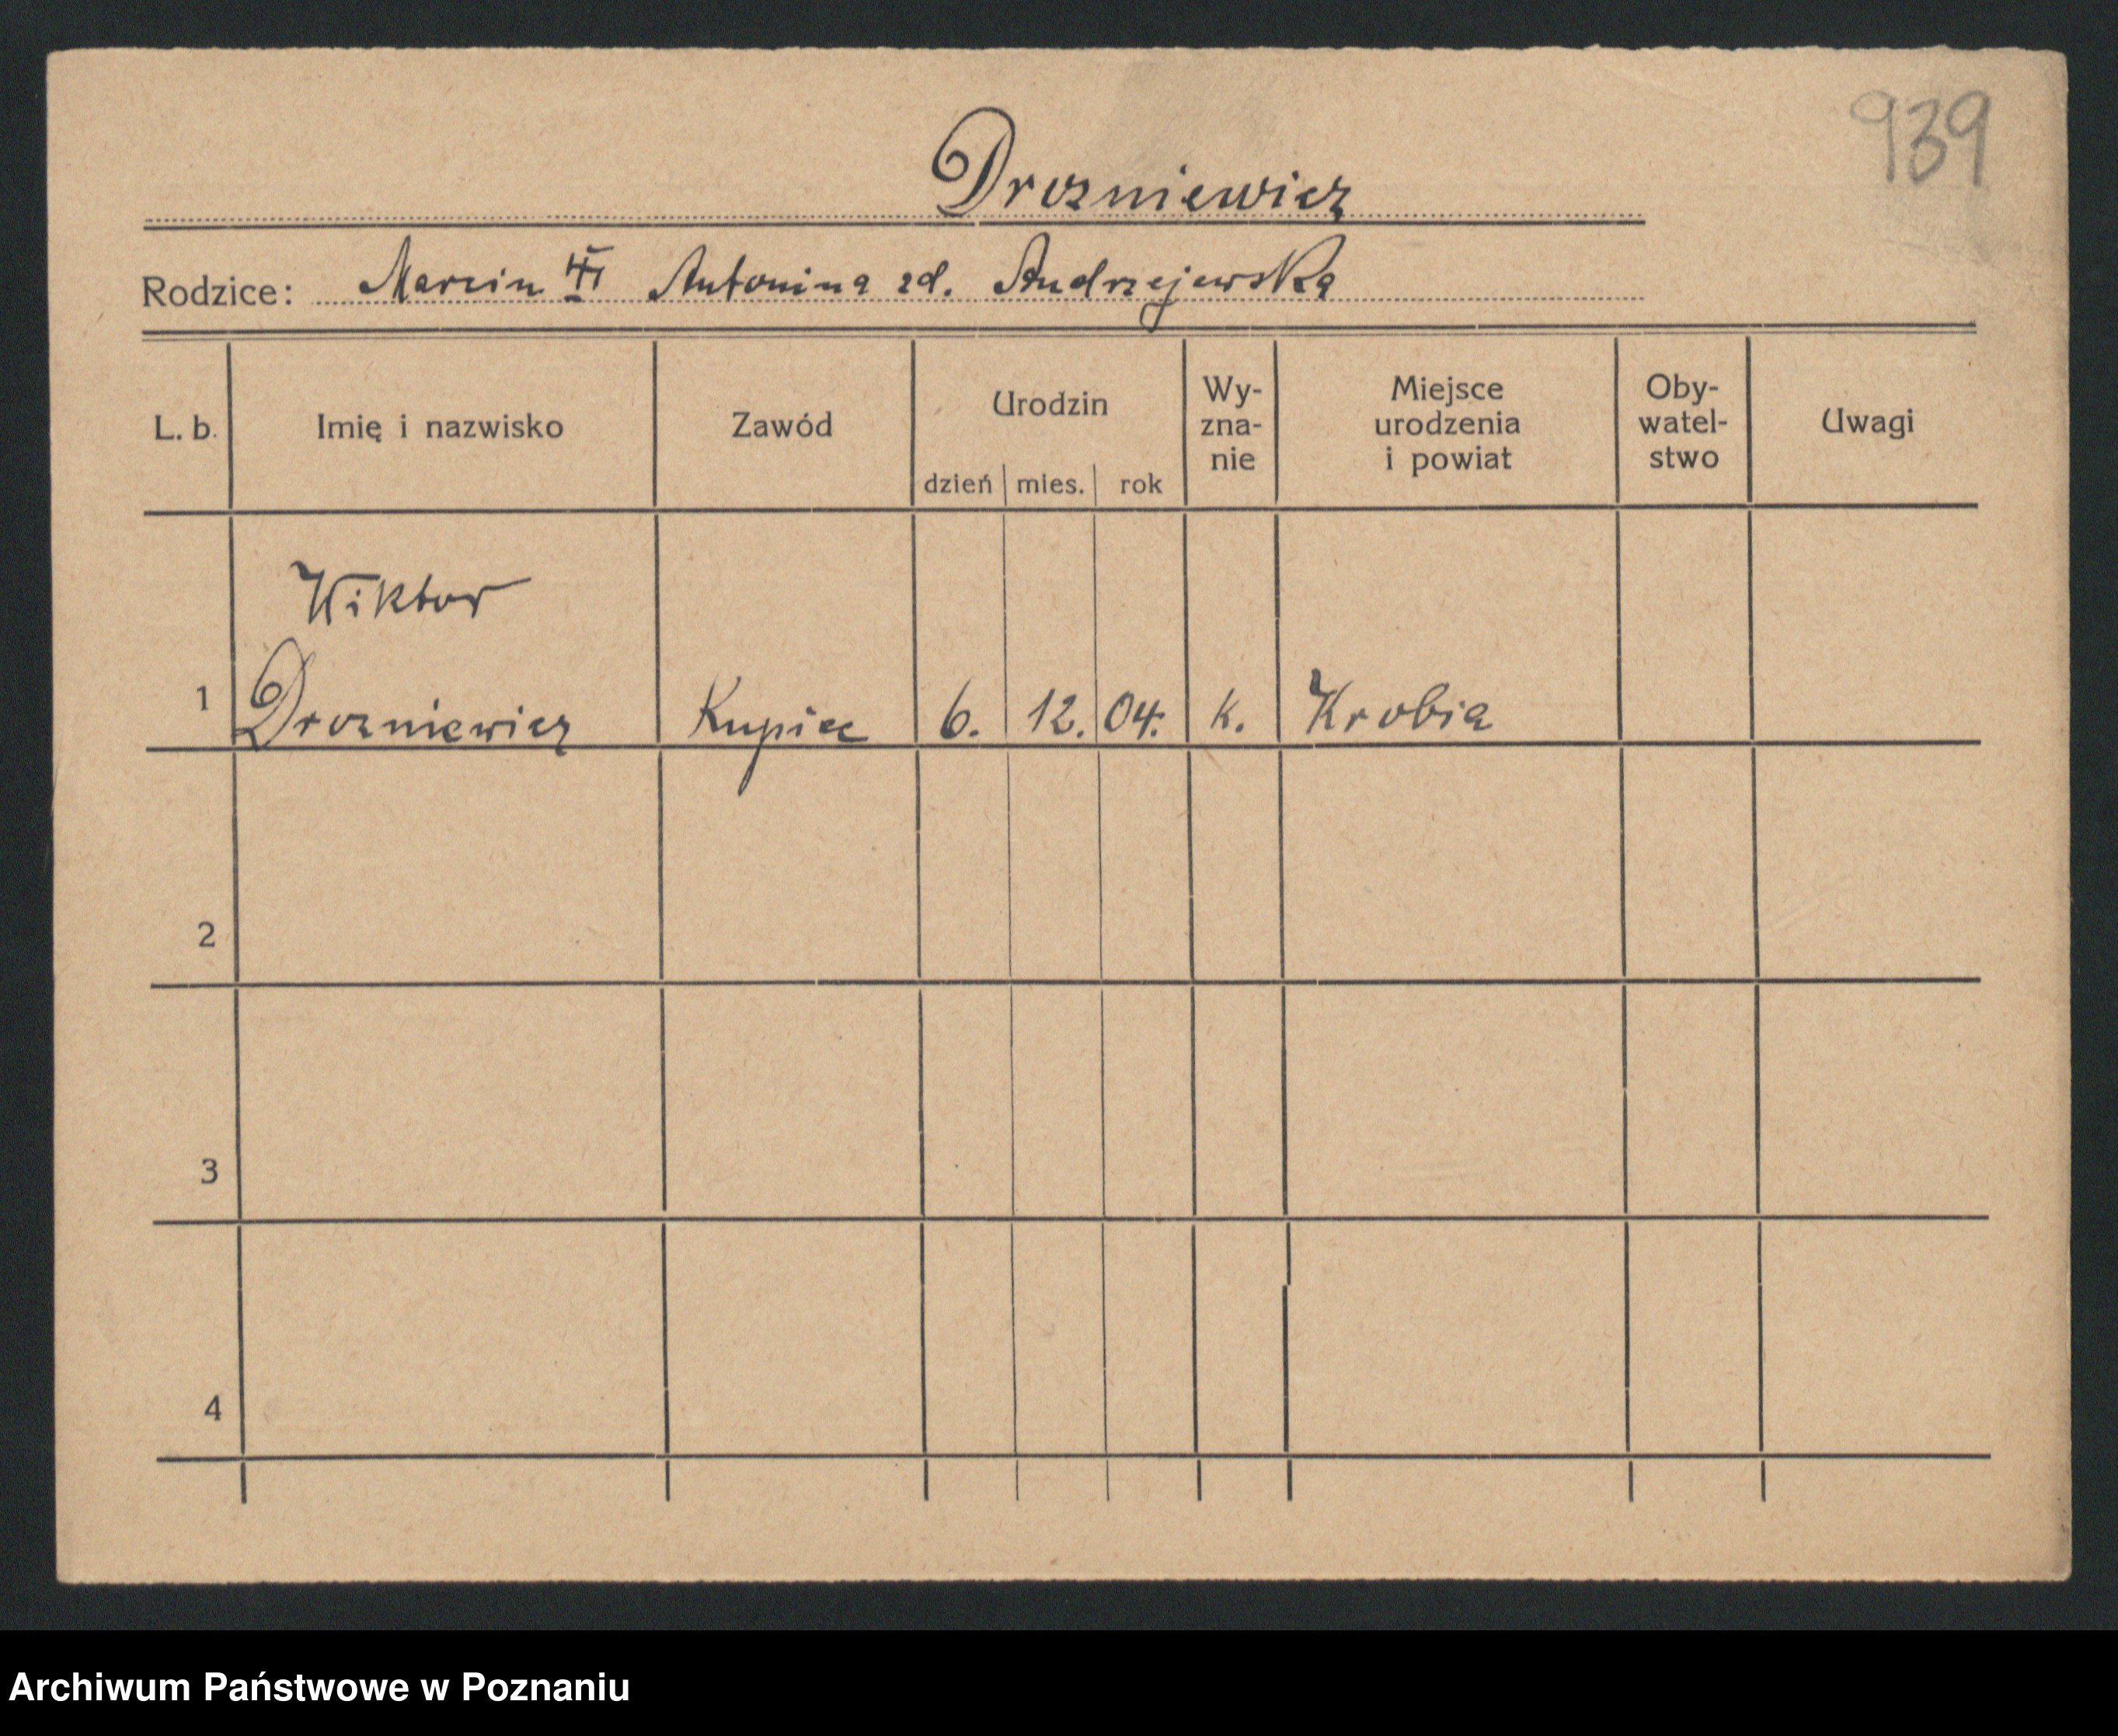 939
Drozniewicz
Rodzice: Marcin Antonina zd. Andrzejewska
L. b. Imię i nazwisko Zawód Urodzin dzień mies. rok Wy-zna-nie Miejsce urodzenia i powiat Oby-watel-stwo Uwagi
Wiktor
1 Drozniewicz Kupiec 6. 12. 04. k. Krobia
2
3
4
Archiwum Państwowe w Poznaniu